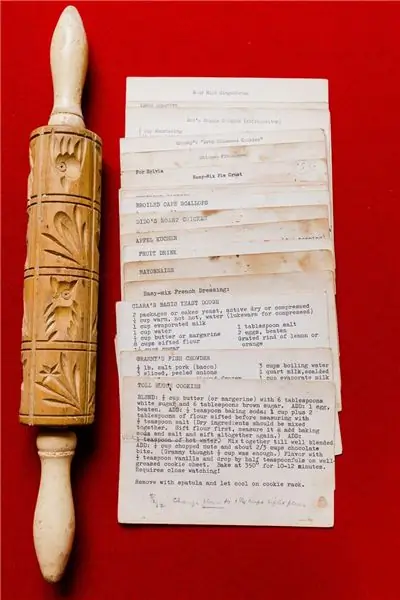 Easy-Mix Pie Crust
For Sylvia
BROILED CAPE SCALLOPS
DIDO'S ROAST CHICKEN
APFEL KUCHEN
FRUIT DRINK
MAYONNAISE
Easy-mix French Dressing:
CLARA'S BASIC YEAST DOUGH
2 packages or cakes yeast, active dry or compressed
½ cup warm, not hot, water (lukewarm for compressed)
1 cup evaporated milk 1 tablespoon salt
1 cup water 2 eggs, beaten
½ cup butter or margarine Grated rind of lemon or
8 cups sifted flour orange
cup sugar
GRAMMY'S FISH CHOWDER
¼ lb. salt pork (bacon) 3 cups boiling water
3 sliced, peeled onions 1 quart milk, scalded
1 cup evaporate milk
TOLL HOUSE COOKIES
BLEND: ½ cup butter (or margarine) with 6 tablespoons
white sugar and 6 tablespoons brown sugar. ADD: 1 egg,
beaten. ADD: ½ teaspoon baking soda; 1 cup plus 2
tablespoons of flour sifted before measuring and
½ teaspoon salt (Dry ingredients should be mixed
together. Sift flour first, measure it & add baking
soda and salt and sift altogether again.) ADD:
½ teaspoon of hot water. Mix together till well blended
ADD: ½ cup chopped nuts and about 2/3 cups chocolate
bits. (Grammy thought ½ cup was enough.) Flavor with
½ teaspoon vanilla and drop by half teaspoonfuls on well-
greased cookie sheet. Bake at 350° for 10-12 minutes.
Requires close watching!
Remove with spatula and let cool on cookie rack.
Change flour to